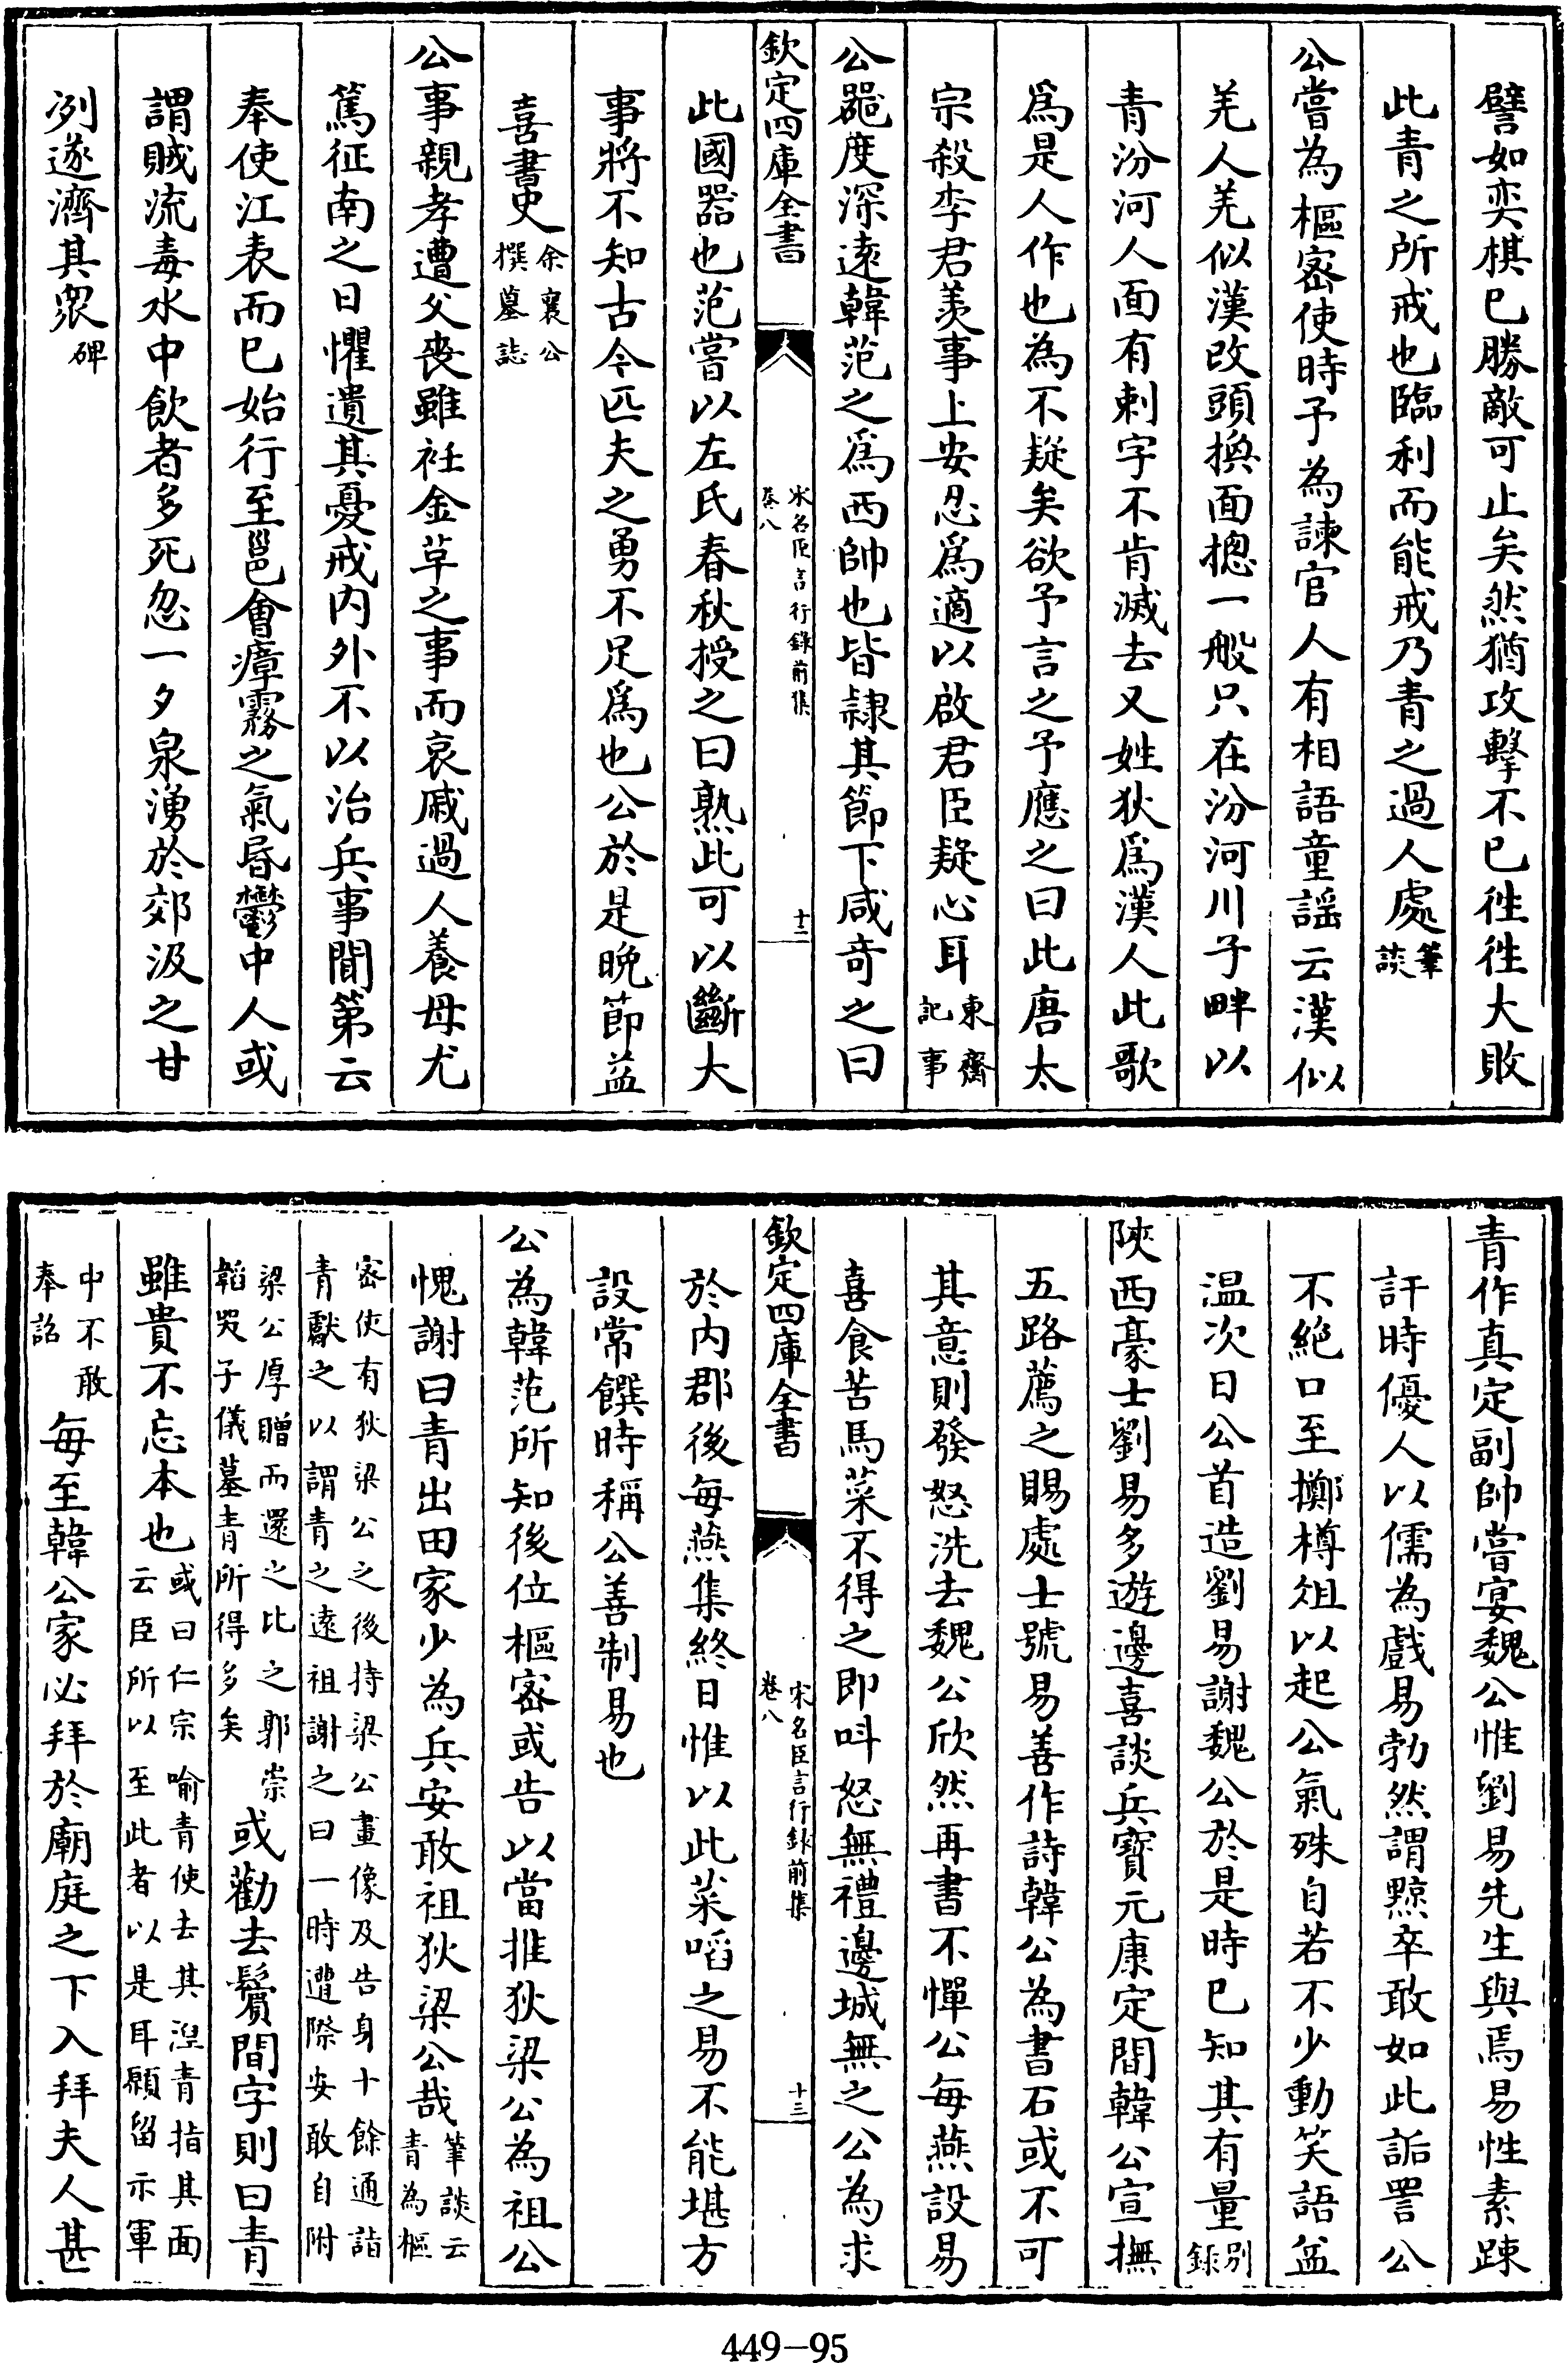 譬如奕棋已勝敵可止矣然猶攻擊不已往往大敗
此青之所戒也臨利而能戒乃青之過人處筆談
公嘗為樞密使時予為諫官人有相語童謡云漢似
羌人羌似漢改頭換面摠一般只在汾河川子畔以
青汾河人面有刺字不肯滅去又姓狄爲漢人此歌
爲是人作也為不疑矣欲予言之予應之曰此唐太
宗殺李君羨事上安忍爲適以啟君臣疑心耳東齋記事
公噐度深遠韓范之爲西帥也皆隷其節下咸奇之曰
欽定四庫全書
宋名臣言行錄前集
卷八
十二
此國器也范嘗以左氏春秋授之曰熟此可以斷大
事將不知古今匹夫之勇不足爲也公於是晚節益
喜書史余襄公撰墓誌
公事親孝遭父喪雖衽金革之事而哀戚過人養母尤
篤征南之日懼遺其憂戒内外不以治兵事聞第云
奉使江表而已始行至邕會瘴霧之氣昬鬱中人或
謂賊流毒水中飲者多死忽一夕泉湧於郊汲之甘
冽遂濟其衆碑
青作真定副帥嘗宴魏公惟劉易先生與焉易性素疎
訐時優人以儒為戲易勃然謂黥卒敢如此詬詈公
不絶口至擲樽俎以起公氣殊自若不少動笑語益
温次日公首造劉易謝魏公於是時已知其有量别錄
陝西豪士劉易多遊邊喜談兵寳元康定間韓公宣撫
五路薦之賜處士號易善作詩韓公為書石或不可
其意則發怒洗去魏公欣然再書不憚公每燕設易
喜食苦馬菜不得之即呌怒無禮邊城無之公為求
欽定四庫全書
宋名臣言行録前集
卷八
十三
於内郡後每燕集終日惟以此菜啗之易不能堪方
設常饌時稱公善制易也
公為韓范所知後位樞密或告以當推狄梁公為祖公
愧謝曰青出田家少為兵安敢祖狄梁公哉筆談云青為樞
密使有狄梁公之後持梁公畫像及告身十餘通詣
青獻之以謂青之遠祖謝之曰一時遭際安敢自附
梁公厚贈而還之比之郭崇
韜哭子儀墓青所得多矣或勸去鬢間字則曰青
雖貴不忘本也或曰仁宗喻青使去其湼青指其面
云臣所以至此者以是耳願留示軍
中不敢
奉詔每至韓公家必拜於廟庭之下入拜夫人甚
449-95